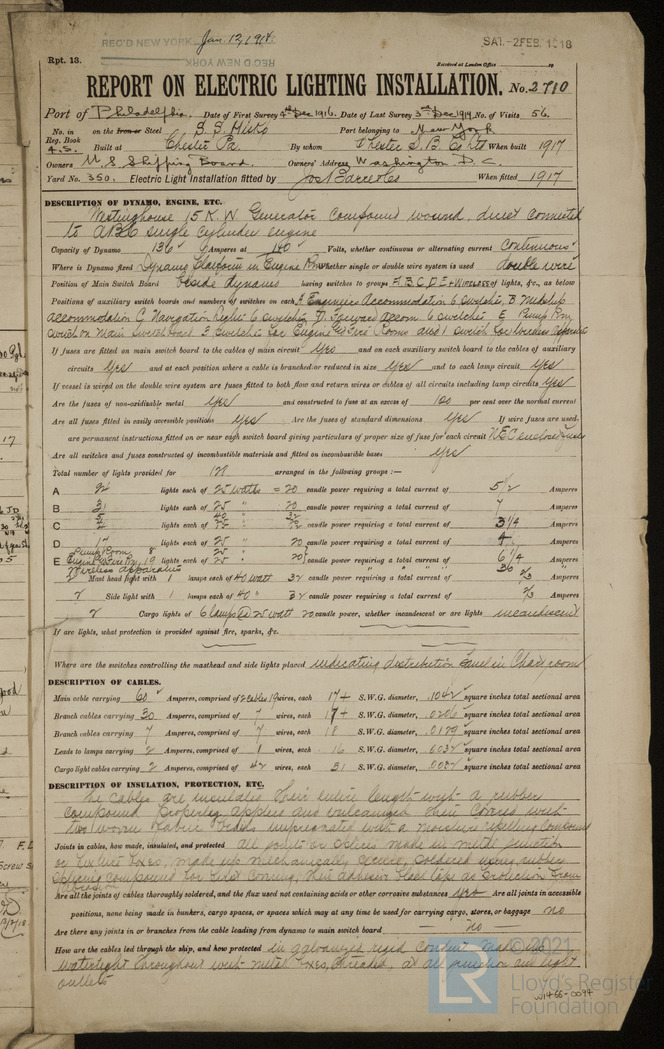 REC'D NEW YORK Jan. 12, 1918
SAT. 2 FEB. 1918
REC'D NEW YORK
Rpt. 13.
Received at London Office
REPORT ON ELECTRIC LIGHTING INSTALLATION. No. 2710
Port of Philadelphia. Date of First Survey 4th Dec 1916. Date of Last Survey 3rd Dec 1917. No. of Visits 56.
No. in Reg. Book on the Iron or Steel S.S. Port belonging to New York
Built at Chester Pa. By whom Chester S. B. Co Ltd When built 1917
Owners U.S. Shipping Board. Owners' Address Washington D.C.
Yard No. 350. Electric Light Installation fitted by When fitted 1917
DESCRIPTION OF DYNAMO, ENGINE, ETC.
Westinghouse 15 K.W. Generator compound wound, direct connected
to single cylinder engine
Capacity of Dynamo 136 Amperes at 110 Volts, whether continuous or alternating current continuous
Where is Dynamo fixed Dynamo Platform in Engine Rm whether single or double wire system is used double wire
Position of Main Switch Board beside dynamo having switches to groups A.B.C.D.E + WIRELESS of lights, &c., as below
Positions of auxiliary switch boards and numbers of switches on each A Engineers Accommodation 6 switches, B Midship
accommodation C Navigation Lights 6 switches D Forward accom. 6 switches E Pump Rm
switch on main switchboard 2 switches for Engine & Fire Room and 1 switch for wireless apparatus
If fuses are fitted on main switch board to the cables of main circuit yes and on each auxiliary switch board to the cables of auxiliary
circuits yes and at each position where a cable is branched or reduced in size yes and to each lamp circuit yes
If vessel is wired on the double wire system are fuses fitted to both flow and return wires or cables of all circuits including lamp circuits yes
Are the fuses of non-oxidizable metal yes and constructed to fuse at an excess of 100 per cent over the normal current
Are all fuses fitted in easily accessible positions yes Are the fuses of standard dimensions yes If wire fuses are used
are permanent instructions fitted on or near each switch board giving particulars of proper size of fuse for each circuit N.E.C. enclosed fuses
Are all switches and fuses constructed of incombustible materials and fitted on incombustible bases yes
Total number of lights provided for arranged in the following groups :—
A 24 lights each of 25 watts = 20 candle power requiring a total current of 5 1/2 Amperes
B 31 lights each of 25 " 20 candle power requiring a total current of 7 Amperes
C lights each of candle power requiring a total current of 3 1/4 Amperes
D 17 lights each of 25 " 20 candle power requiring a total current of 4 Amperes
E Pump Room 8 Engine & Fire Rm. 19 lights each of 25 " 20 candle power requiring a total current of 6 1/4 Amperes
Wireless apparatus 30 "
2 Mast head light with 1 lamps each of 40 watt 32 candle power requiring a total current of 2/3 Amperes
2 Side light with 1 lamps each of 40 " 32 candle power requiring a total current of 2/3 Amperes
2 Cargo lights of 6 lamps @ 25 watt 20 candle power, whether incandescent or arc lights incandescent
If arc lights, what protection is provided against fire, sparks, &c.
Where are the switches controlling the masthead and side lights placed indicating distribution panel in Chart room
DESCRIPTION OF CABLES.
Main cable carrying 60 Amperes, comprised of 2 cables 19 wires, each 17+ S.W.G. diameter, .1042 square inches total sectional area
Branch cables carrying 30 Amperes, comprised of 7 wires, each 17+ S.W.G. diameter, .0206 square inches total sectional area
Branch cables carrying 7 Amperes, comprised of 7 wires, each 18 S.W.G. diameter, .0129 square inches total sectional area
Leads to lamps carrying 2 Amperes, comprised of 1 wires, each 16 S.W.G. diameter, .0032 square inches total sectional area
Cargo light cables carrying 2 Amperes, comprised of 42 wires, each 31 S.W.G. diameter, square inches total sectional area
DESCRIPTION OF INSULATION, PROTECTION, ETC.
The cables are insulated their entire length with a rubber
compound properly applied and vulcanized their covers with
two woven fabric braids impregnated with a moisture repelling compound
Joints in cables, how made, insulated, and protected all joints or splices made in metal junction
or outlet boxes, made up mechanically secure, soldered using rubber
splicing compound for first covering, then adhesive tape as protection from
vibration
Are all the joints of cables thoroughly soldered, and the flux used not containing acids or other corrosive substances yes Are all joints in accessible
positions, none being made in bunkers, cargo spaces, or spaces which may at any time be used for carrying cargo, stores, or baggage no
Are there any joints in or branches from the cable leading from dynamo to main switch board no
How are the cables led through the ship, and how protected in galvanized rigid conduit made
watertight throughout with metal boxes, threaded, at all junction and light
outlets
© 2021
LR
Lloyd's Register
Foundation
W1466-0094